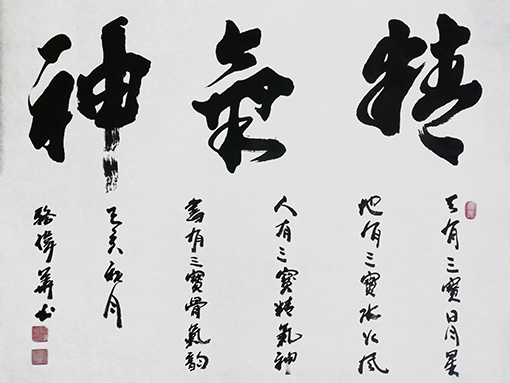 精氣神
天有三寶日月星
地有三寶水火風
人有三寶精氣神
書有三寶骨氣韵
己亥秋月
駱偉華书